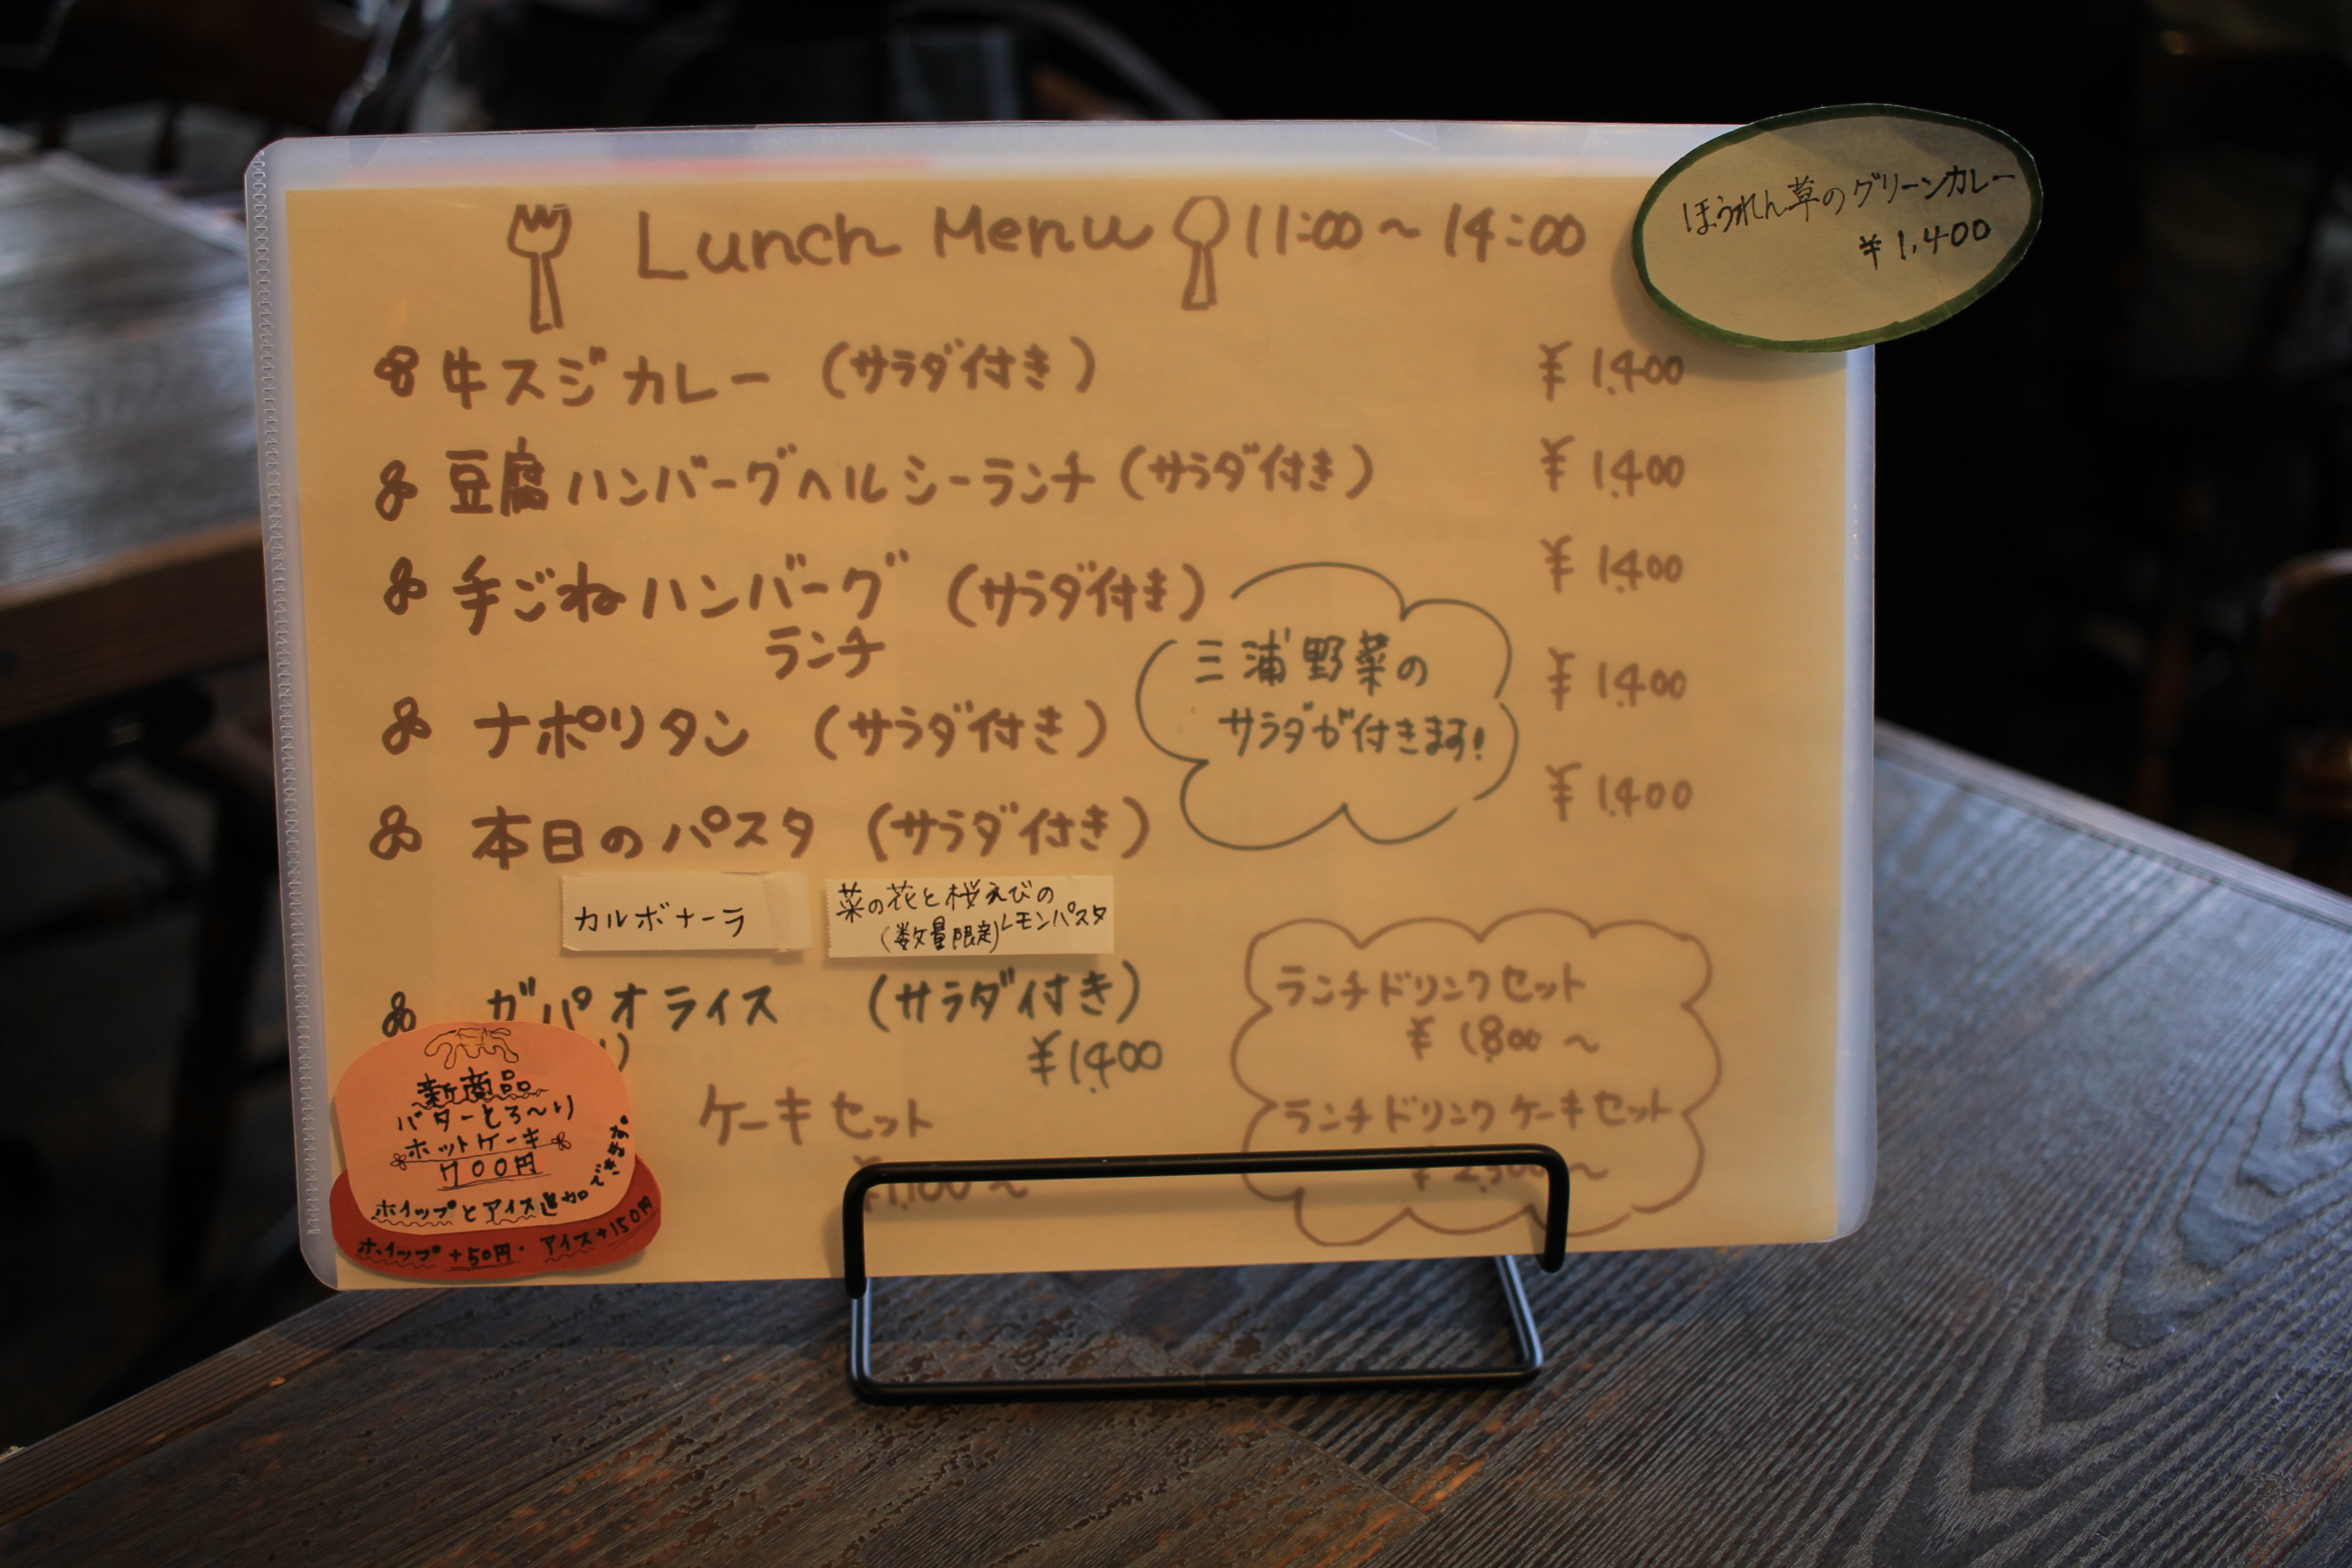 Lunch Menu 11:00～14:00
ほうれん草のグリーンカレー
¥1,400
牛スジカレー（サラダ付き） ¥1,400
豆腐ハンバーグヘルシーランチ（サラダ付き） ¥1,400
手ごねハンバーグ（サラダ付き） ¥1,400
ランチ
三浦野菜の
サラダが付きます!
ナポリタン（サラダ付き） ¥1,400
本日のパスタ（サラダ付き） ¥1,400
カルボナーラ
菜の花と桜えびの
レモンパスタ
（数量限定）
ガパオライス（サラダ付き）
¥1,400
ケーキセット
¥1,100～
ランチドリンクセット
¥1,800～
ランチドリンクケーキセット
新商品
バターとろ～り
ホットケーキ
700円
ホイップとアイス追加できます。
ホイップ+50円・アイス+150円